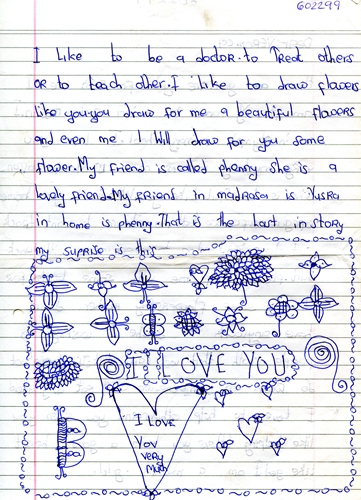 602299
I Like to be a doctor. to Treat others
or to teach other. I like to draw flowers
like you. you draw for me a beautiful flowers
and even me I Will draw for you some
flower. My friend is called phenny she is a
lovely friend. My friend in madrasa is Yusra
in home is phenny. That is the last in story
my suprise is this
I LOVE YOU
I LOVE
You
very
Much